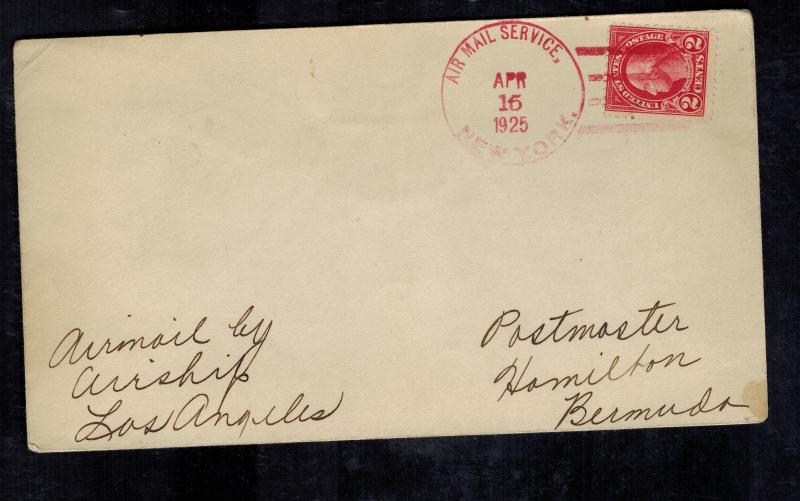 AIR MAIL SERVICE,
APR
15
1925
NEW YORK.
UNITED STATES POSTAGE
2 CENTS 2
Airmail by
Airship
Los Angeles
Postmaster
Hamilton
Bermuda